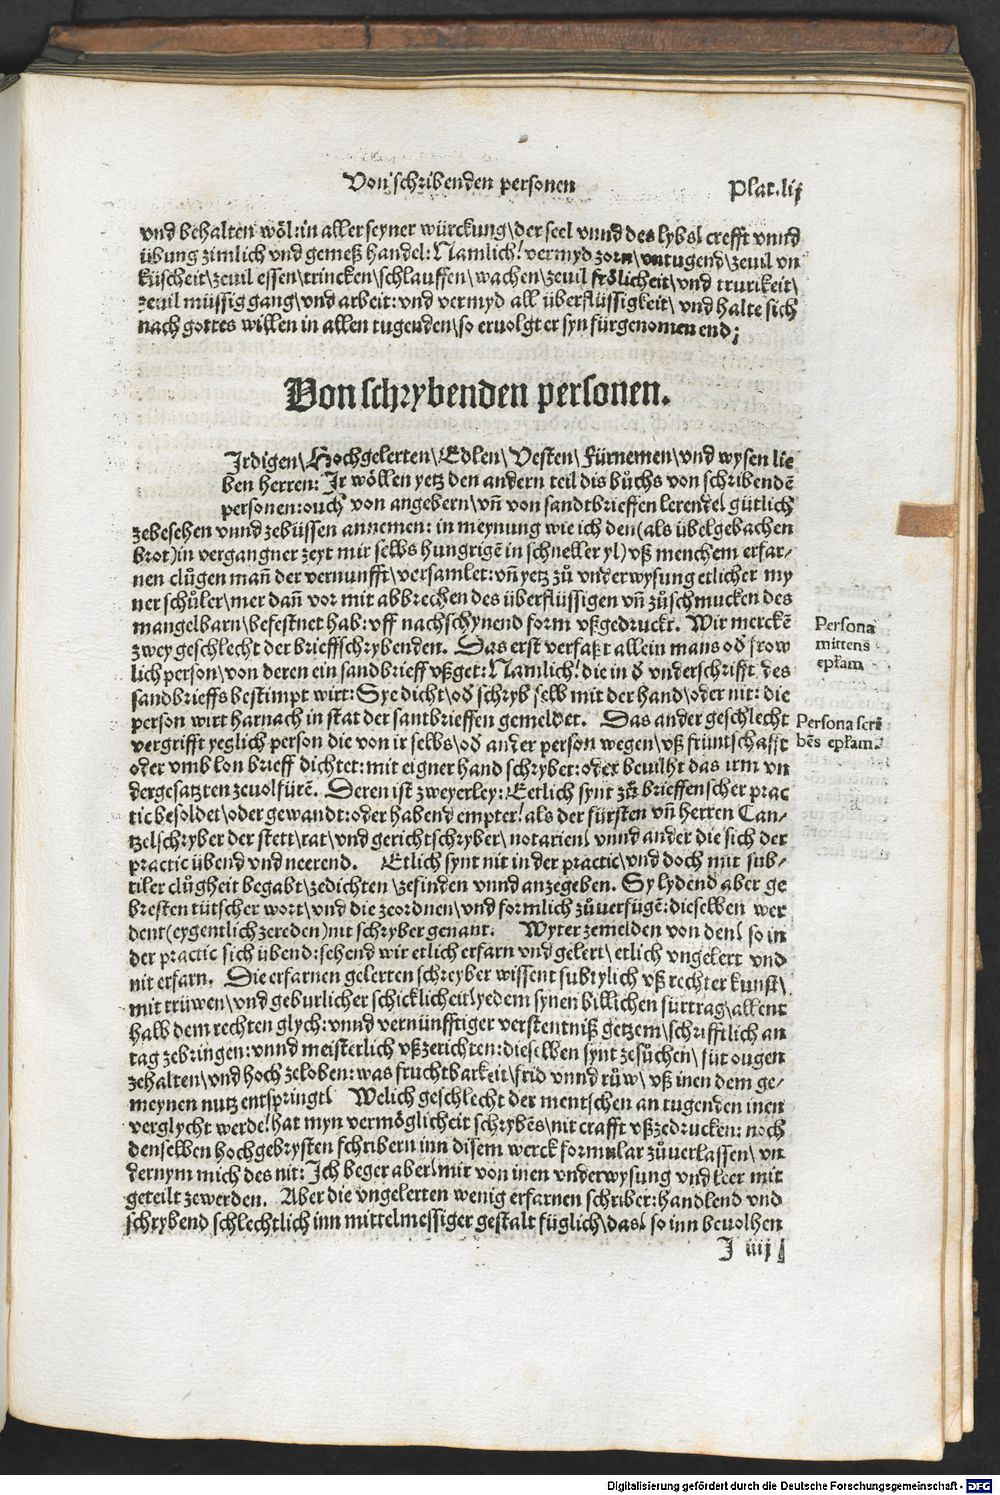 Von schribenden personen
Plat.lij
vnd behalten wöl: in aller seyner würckung\ der seel vnnd des lybs\ crefft vnnd
übung zimlich vnd gemeß handel: Namlich! vermyd zorn\ vntugend\ zeuil vn
küscheit\ zeuil essen\ trincken\ schlauffen\ wachen\ zeuil frölicheit\ vnd trurikeit\
zeuil müssig gang\ vnd arbeit: vnd vermyd all überflüssigkeit\ vnd halte sich
nach gottes willen in allen tugenden\ so eruolgt er syn fürgenomen end;
Von schrybenden personen.
Irdigen\ Hochgelerten\ Edlen\ Vesten\ Fürnemen\ vnd wysen lie
ben herren: Ir wöllen yetz den andern teil dis bůchs von schribendē
personen: ouch von angebern\ vñ von sandtbrieffen lerende\ gütlich
zebesehen vnnd zebüssen annemen: in meynung wie ich den (als übelgebachen
brot) in vergangner zeyt mir selbs hungrigē in schneller yl) vß menchem erfar⸗
nen clůgen mañ der vernunfft\ versamlet: vñ yetz zů vnderwysung etlicher my
ner schůler\ mer dañ vor mit abbrechen des überflüssigen vñ zůschmucken des
mangelbarn\ befestnet hab: vff nachschynend form vßgedruckt. Wir merckē
zwey geschlecht der brieffschrybenden. Das erst verfaßt allein mans oď frow
lich person\ von deren ein sandbrieff vßget: Namlich! die in ď vnderschrifft des
sandbrieffs bestimpt wirt: Sye dicht\ oď schryb selb mit der hand\ oder nit: die
person wirt harnach in stat der santbrieffen gemeldet. Das ander geschlecht
vergrifft yeglich person die von ir selbs\ oď ander person wegen\ vß früntschafft
oder vmb lon brieff dichtet: mit eigner hand schryber: oder beuilht das irm vn
dergesatzten zeuolfürē. Deren ist zweyerley: Eetlich synt zů brieffenscher prac
tic besoldet\ oder gewandt: oder habend empter! als der fürsten vñ herren Can⸗
tzelschryber der stett\ rat\ vnd gerichtschryber\ notarien\ vnnd ander die sich der
practic übend vnd neerend. Etlich synt nit in der practic\ vnd doch mit sub⸗
tiler clůgheit begabt\ zedichten\ zefinden vnnd anzegeben. Sy lydend aber ge
bresten tütscher wort\ vnd die zeordnen\ vnd formlich zůuerfügē: dieselben wer
dent (eygentlich zereden) nit schryber genant. Wyter zemelden von den\ so in
der practic sich übend: sehend wir etlich erfarn vnd gelert\ etlich vngelert vnd
nit erfarn. Die erfarnen gelerten schreyber wissent subtylich vß rechter kunst\
mit trüwen\ vnd geburlicher schicklicheit\ yedem synen billichen fürtrag\ allent
halb dem rechten glych: vnnd vernünfftiger verstentniß getzem\ schrifftlich an
tag zebringen: vnnd meisterlich vßzerichten: dieselben synt zesůchen\ für ougen
zehalten\ vnd hoch zeloben: was fruchtbarkeit\ frid vnnd růw\ vß inen dem ge⸗
meynen nutz entspringt\ Welich geschlecht der mentschen an tugenden inen
verglycht werde! hat myn vermöglicheit schrybēs\ nit crafft vßzedrucken: noch
denselben hochgebrysten schribern inn disem werck formular zůuerlassen\ vn
dernym mich des nit: Ich beger aber\ mir von inen vnderwysung vnd leer mit
geteilt zewerden. Aber die vngelerten wenig erfarnen schriber: handlend vnd
schrybend schlechtlich inn mittelmessiger gestalt füglich\ das\ so inn beuolhen
J iiij
Persona
mittens
epłam
Persona scri
bēs epłam.
Digitalisierung gefördert durch die Deutsche Forschungsgemeinschaft - DFG